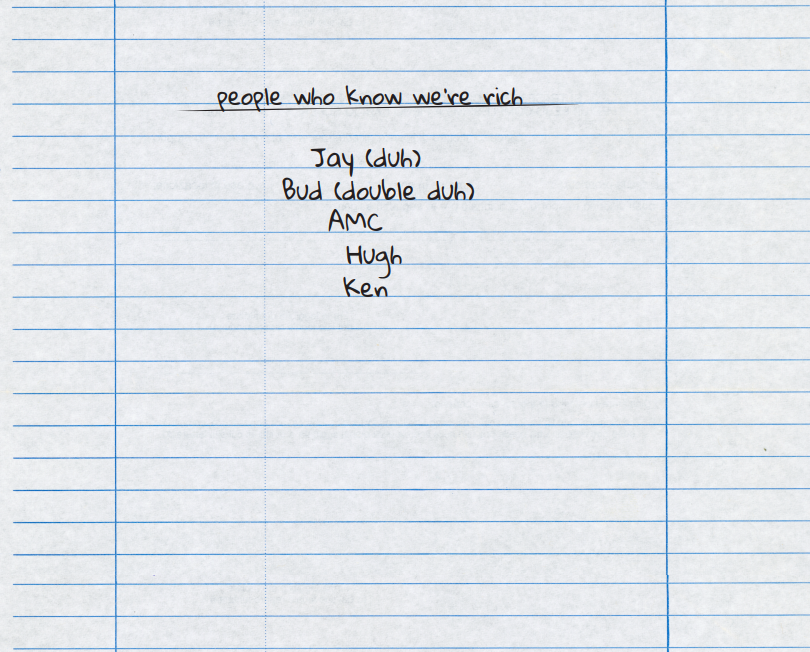 people who know we're rich
Jay (duh)
Bud (double duh)
AMC
Hugh
Ken